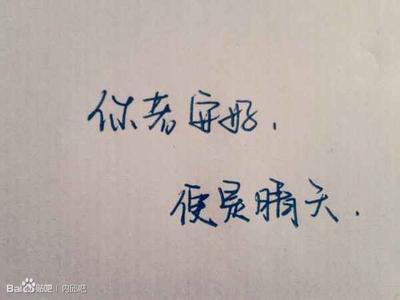 你若安好,
便是晴天.
Bai贴吧 | 内邱吧